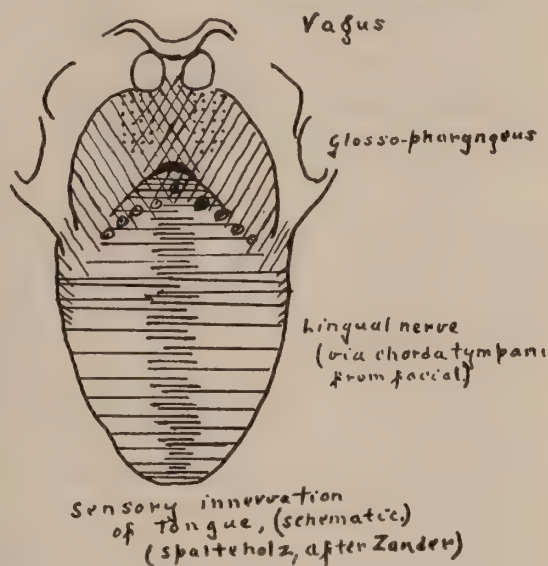 Vagus
Glosso-pharyngeus
Lingual nerve
(via chorda tympani
from facial)
Sensory innervation
of Tongue, (schematic.)
(Spalteholz, after Zander)